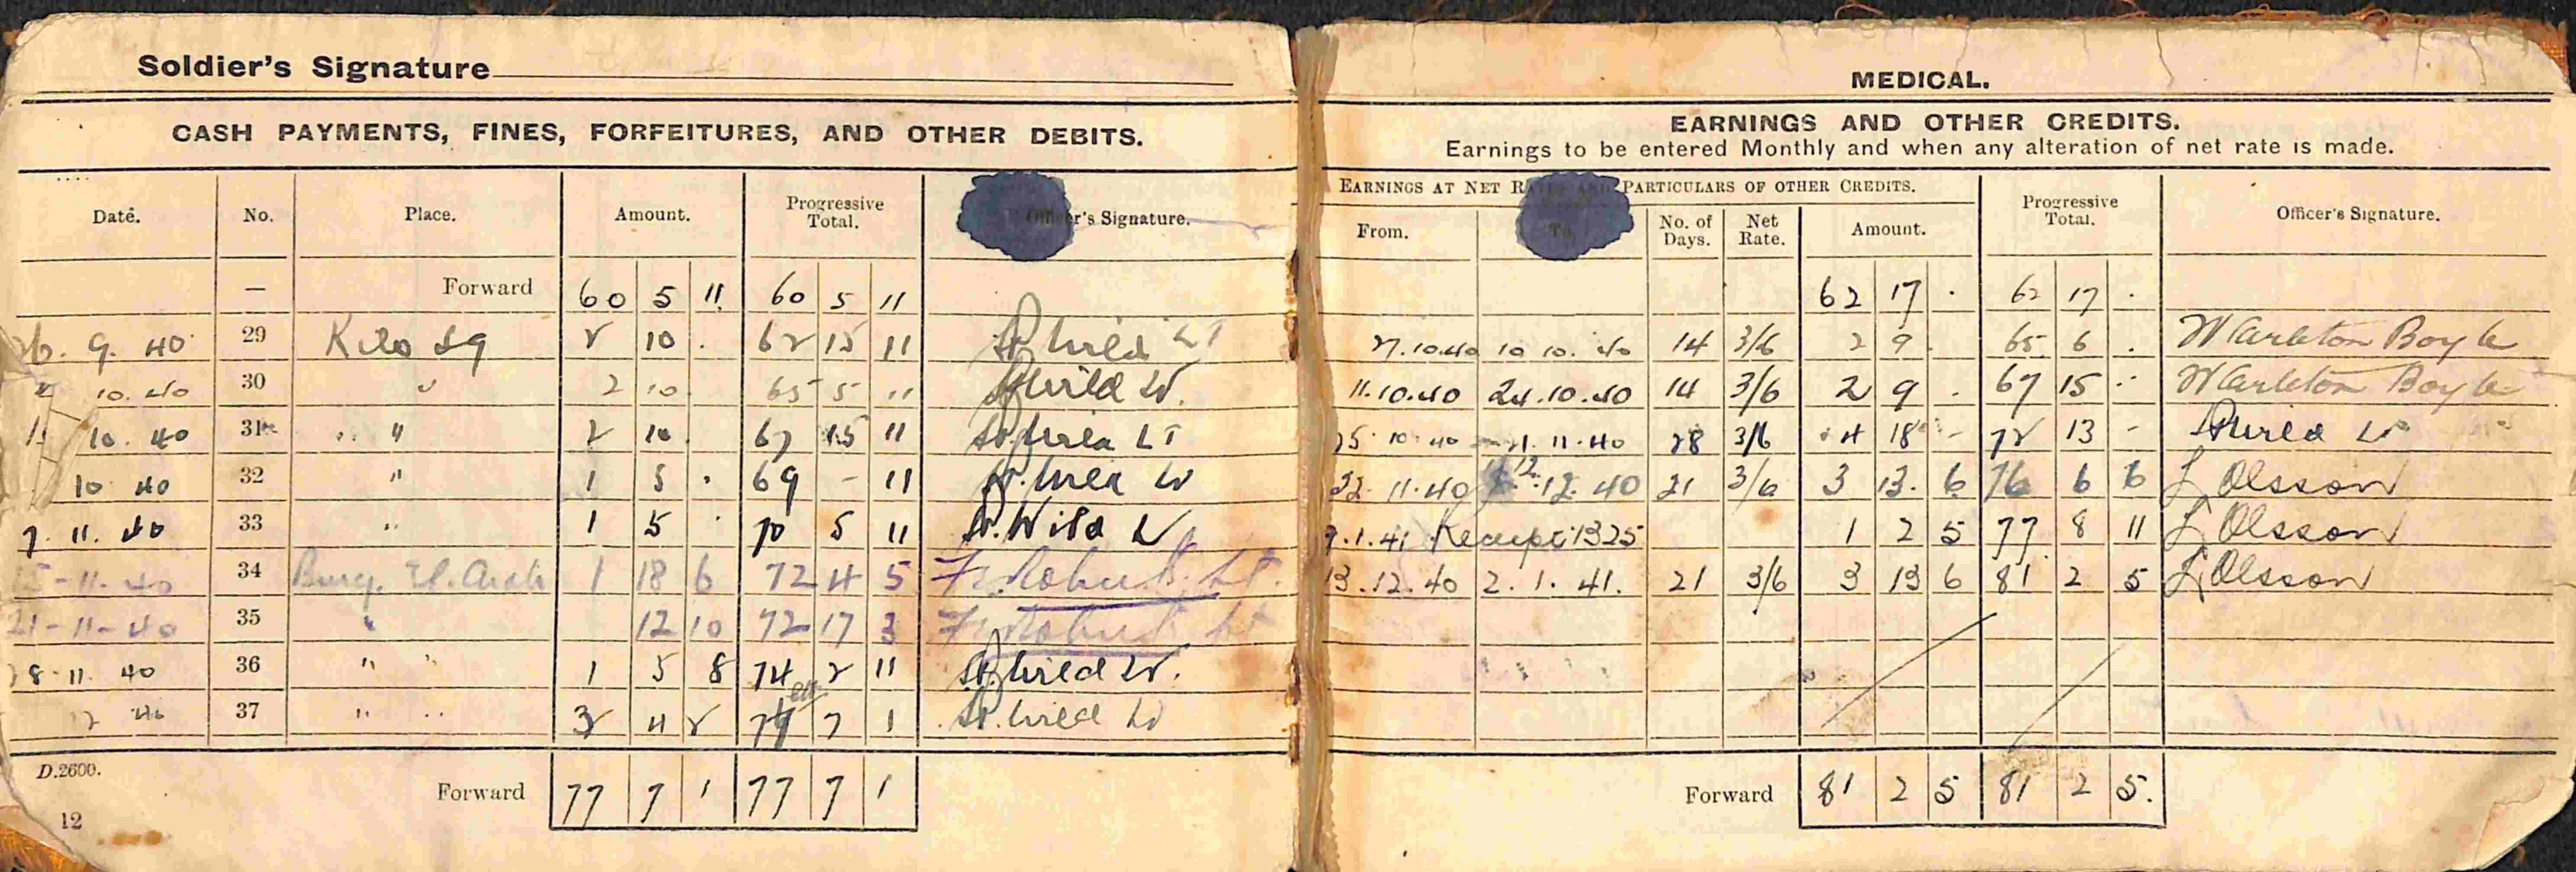 Soldier's Signature
CASH PAYMENTS, FINES, FORFEITURES, AND OTHER DEBITS.
Date. No. Place. Amount. Progressive Total. Officer's Signature.
— Forward 60 5 11 60 5 11
26. 9. 40 29 Kilo 89 2 10 . 62 15 11 Wild LT
10. 40 30 " 2 10 65 5 11 Wild Lt.
10. 40 31 " " 2 10 67 15 11 LT
10 40 32 " 1 5 . 69 - 11 Lt
7. 11. 40 33 " 1 5 . 70 5 11 Wild Lt
15-11-40 34 Burg. El. Arab 1 18 6 72 4 5 Lt.
21-11-40 35 " 12 10 72 17 3 Lt
28-11. 40 36 " " 1 5 8 74 2 11 Wild Lt.
12 40 37 " " 3 4 2 77 7 1 Wild Lt
D.2600.
Forward 77 7 1 77 7 1
12
MEDICAL.
EARNINGS AND OTHER CREDITS.
Earnings to be entered Monthly and when any alteration of net rate is made.
EARNINGS AT NET PARTICULARS OF OTHER CREDITS.
From. No. of Days. Net Rate. Amount. Progressive Total. Officer's Signature.
62 17 . 62 17 .
27.10.40 10 10. 40 14 3/6 2 9 . 65 6 . Boyle
11.10.40 24.10.40 14 3/6 2 9 . 67 15 . Boyle
25 10 40 21.11.40 28 3/6 4 18 - 72 13 - Wild Lt
22.11.40 12.12.40 21 3/6 3 13. 6 76 6 6 L Olsson
9.1.41 Receipt 1325 1 2 5 77 8 11 L Olsson
13.12.40 2.1.41. 21 3/6 3 13 6 81 2 5 L Olsson
Forward 81 2 5 81 2 5.